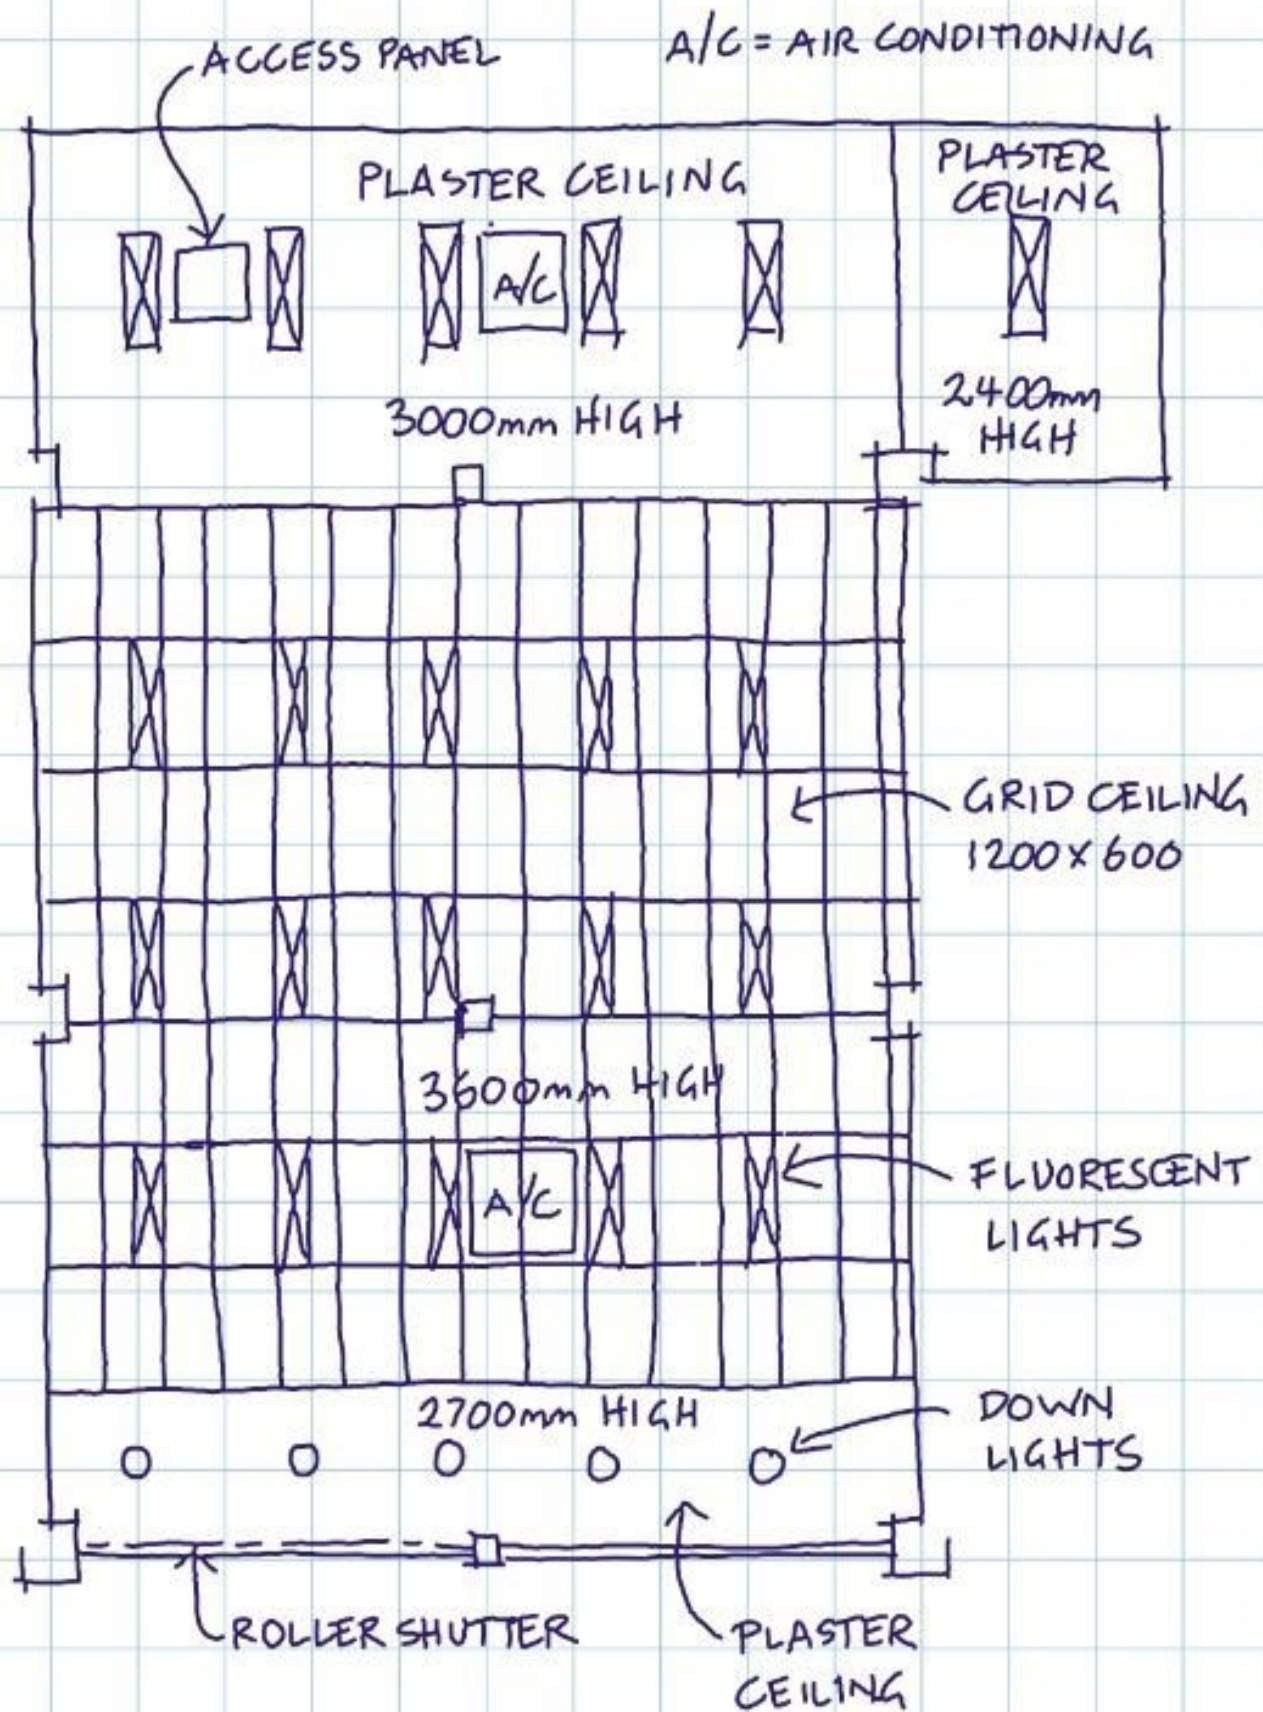 ACCESS PANEL
A/C = AIR CONDITIONING
PLASTER CEILING
PLASTER
CEILING
A/C
3000mm HIGH
2400mm
HIGH
GRID CEILING
1200 x 600
3600mm HIGH
A/C
FLUORESCENT
LIGHTS
2700mm HIGH
DOWN
LIGHTS
ROLLER SHUTTER
PLASTER
CEILING